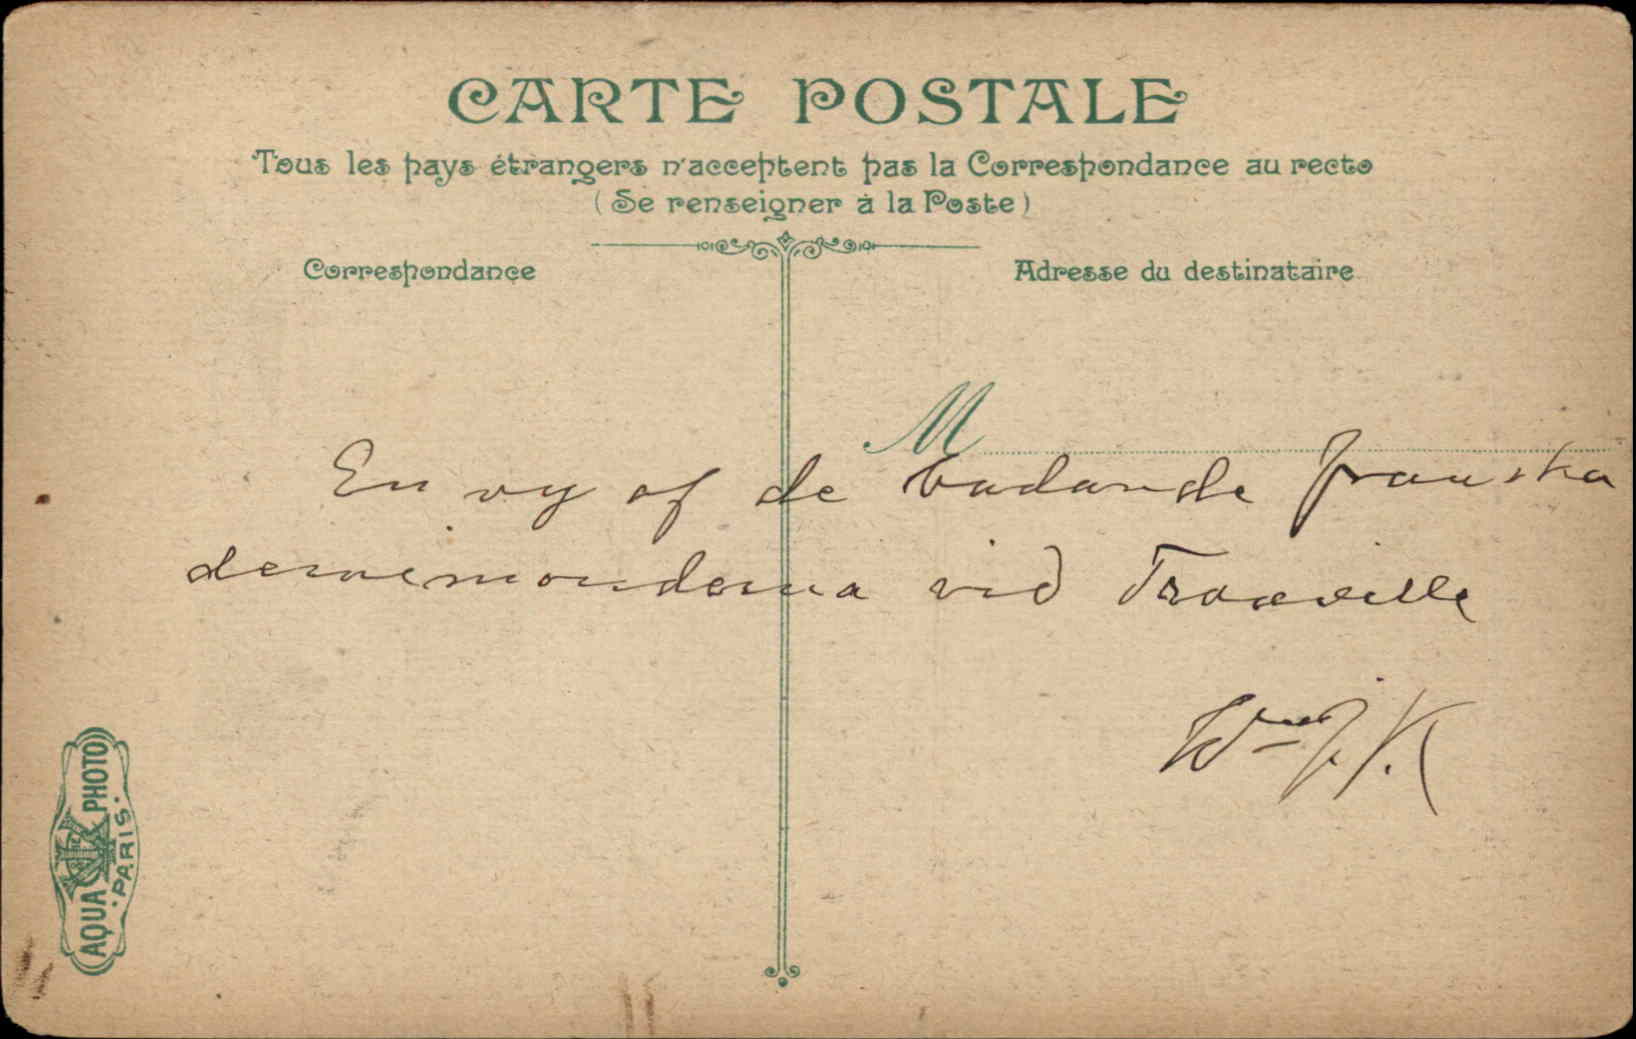 CARTE POSTALE
Tous les pays étrangers n'acceptent pas la Correspondance au recto
(Se renseigner à la Poste)
Correspondance
Adresse du destinataire
M
En vy af de badande franska
demimonderna vid Trouville
Wm J. K
AQUA PHOTO
PARIS